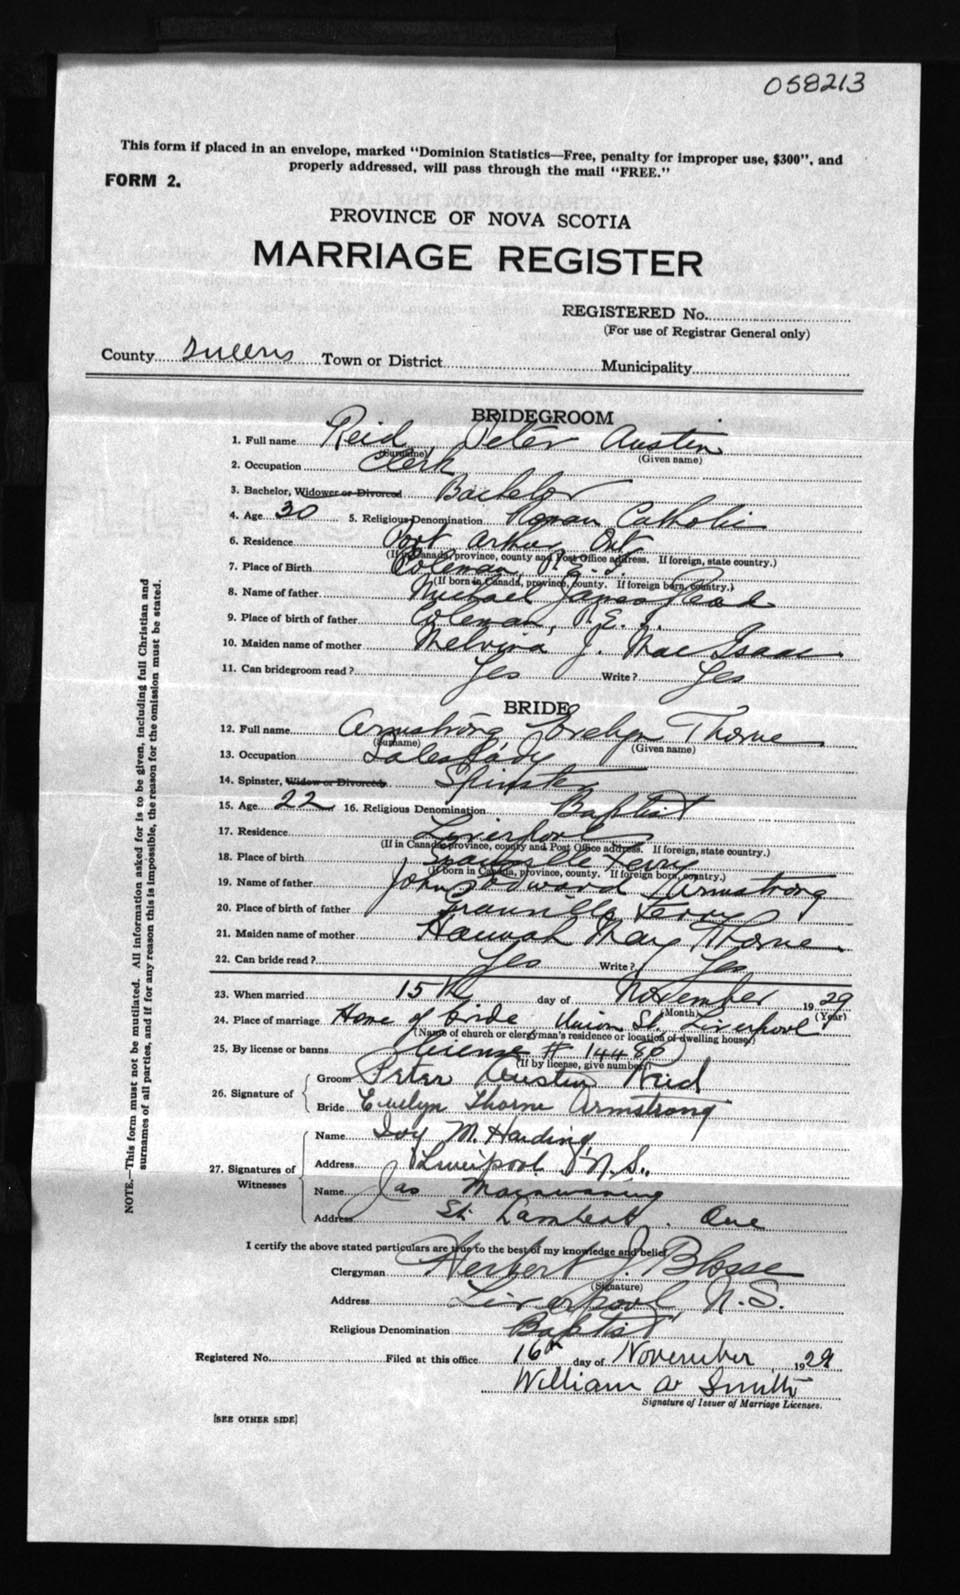 058213
This form if placed in an envelope, marked "Dominion Statistics—Free, penalty for improper use, $300", and
properly addressed, will pass through the mail "FREE."
FORM 2.
PROVINCE OF NOVA SCOTIA
MARRIAGE REGISTER
REGISTERED No.
(For use of Registrar General only)
County Queens Town or District Municipality
BRIDEGROOM
1. Full name Reid Peter Austin
(Surname) (Given name)
2. Occupation Clerk
3. Bachelor, Widower or Divorced Bachelor
4. Age 30 5. Religious Denomination Roman Catholic
6. Residence Port Arthur Ont
(If in Canada, province, county and Post Office address. If foreign, state country.)
7. Place of Birth Coleman, P.E.I.
(If born in Canada, province, county. If foreign born, country.)
8. Name of father Michael James
9. Place of birth of father Coleman, P.E.I.
10. Maiden name of mother Melvina J. MacIsaac
11. Can bridegroom read? Yes Write? Yes
BRIDE
12. Full name Armstrong Evelyn Thorne
(Surname) (Given name)
13. Occupation Saleslady
14. Spinster, Widow or Divorced Spinster
15. Age 22 16. Religious Denomination Baptist
17. Residence Liverpool
(If in Canada, province, county and Post Office address. If foreign, state country.)
18. Place of birth Granville Ferry
(If born in Canada, province, county. If foreign born, country.)
19. Name of father John Edward Armstrong
20. Place of birth of father Granville Ferry
21. Maiden name of mother Hannah Mary Thorne
22. Can bride read? Yes Write? Yes
23. When married 15th day of November 1929
(Month) (Year)
24. Place of marriage Home of bride Union St. Liverpool
(Name of church or clergyman's residence or location of dwelling house)
25. By license or banns license # 14486
(If by license, give number)
26. Signature of Groom Peter Austin Reid
Bride Evelyn Thorne Armstrong
27. Signatures of Witnesses
Name Ivy M. Harding
Address Liverpool N.S.
Name Jas Mainwaring
Address St. Lambert. Que
I certify the above stated particulars are true to the best of my knowledge and belief.
Clergyman Herbert J Blosse
(Signature)
Address Liverpool, N.S.
Religious Denomination Baptist
Registered No. Filed at this office 16th day of November 1929
William W Smith
Signature of Issuer of Marriage Licenses.
[SEE OTHER SIDE]
NOTE.—This form must not be mutilated. All information asked for is to be given, including full Christian and
surnames of all parties, and if for any reason this is impossible, the reason for the omission must be stated.